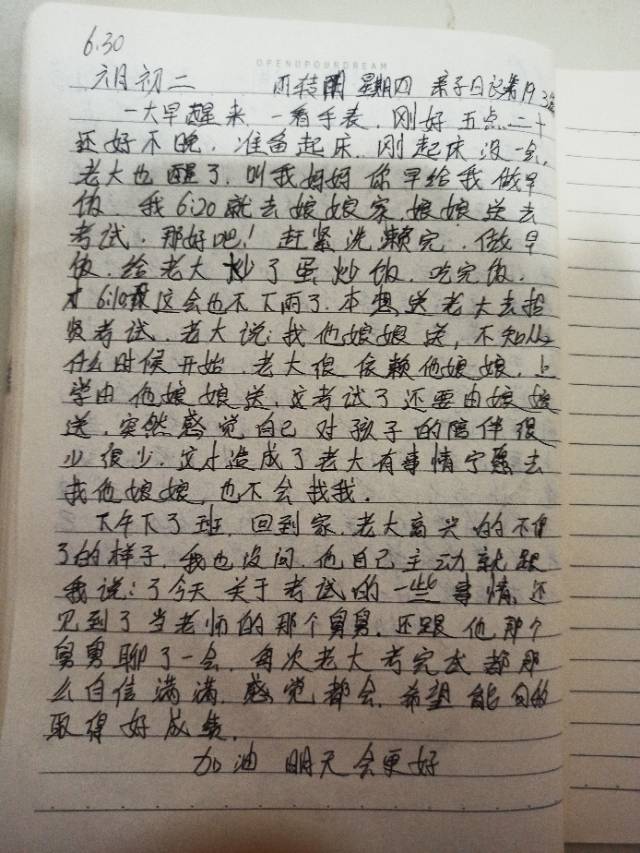 6.30
OPENUPOURDREAM
六月初二 雨转阴 星期四 亲子日记第19 3篇
一大早醒来 一看手表.刚好 五点二十
还好不晚.准备起床.刚起床没一会.
老大也醒了.叫我妈妈你早给我做早
饭 我6:20就去娘娘家.娘娘送去
考试.那好吧!赶紧洗漱完.做早
饭.给老大炒了蛋炒饭.吃完饭.
才6:10 这会也不下雨了.本想送老大去招
贤考试.老大说:找他娘娘送,不知从
什么时候开始.老大很依赖他娘娘.上
学由他娘娘送.这考试了还要由娘娘
送.突然感觉自己对孩子的陪伴很
少很少.这才造成了老大有事情宁愿去
找他娘娘,也不会找我.
下午下了班.回到家.老大高兴的不得
了的样子.我也没问.他自己主动就跟
我说:了今天关于考试的一些事情.还
见到了当老师的那个舅舅.还跟他那个
舅舅聊了一会.每次老大考完试都那
么自信满满.感觉都会.希望能
取得好成绩.
加油 明天会更好